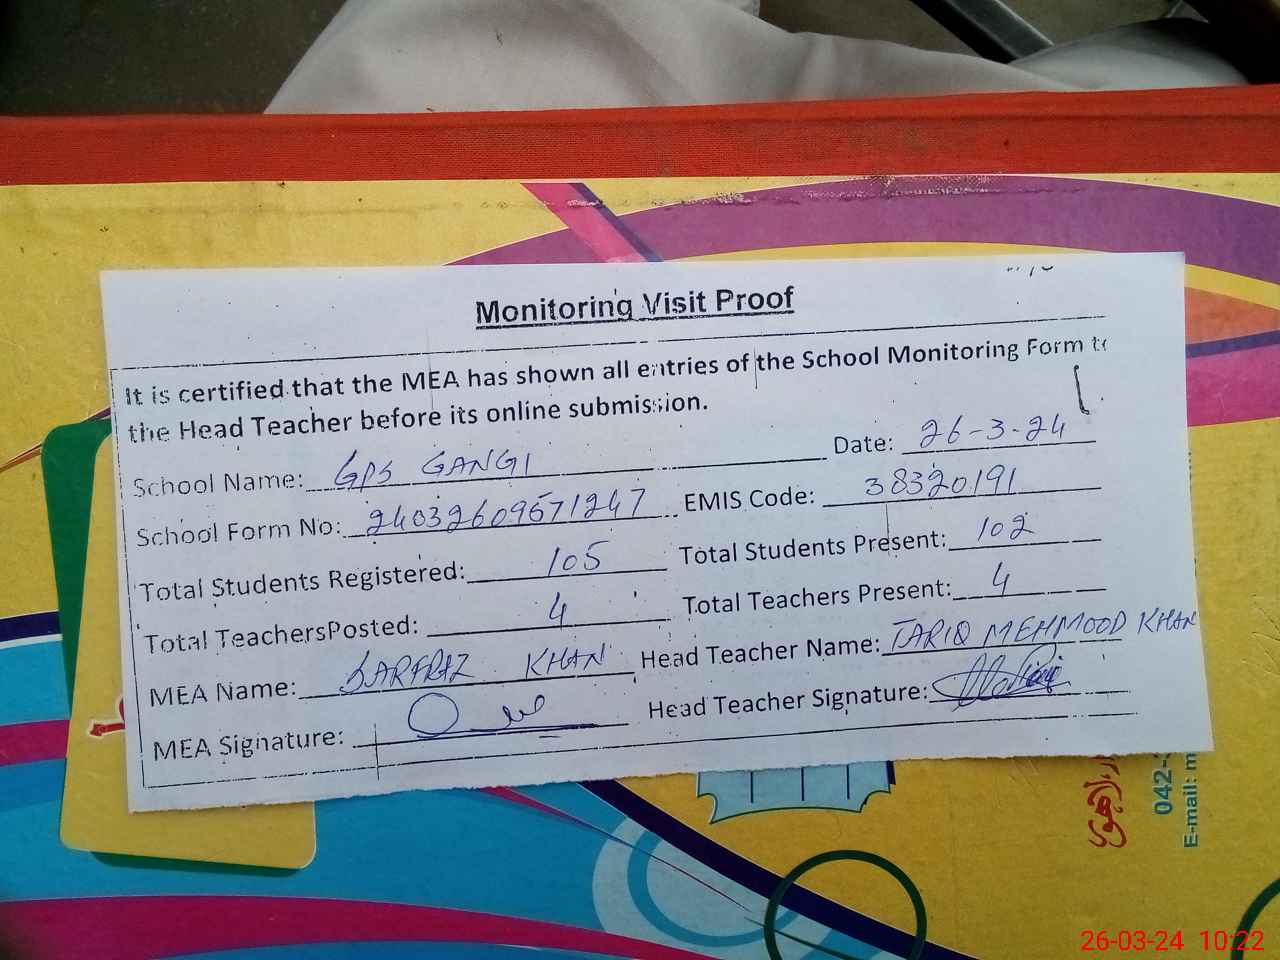 Monitoring Visit Proof
It is certified that the MEA has shown all entries of the School Monitoring Form to
the Head Teacher before its online submission.
School Name: GPS GANGI Date: 26-3-24
School Form No: 24032609571247 EMIS Code: 38320191
Total Students Registered: 105 Total Students Present: 102
Total TeachersPosted: 4 Total Teachers Present: 4
MEA Name: SARFRAZ KHAN Head Teacher Name: TARIQ MEHMOOD KHAN
MEA Signature: Head Teacher Signature:
042-
E-mail: m
26-03-24 10:22